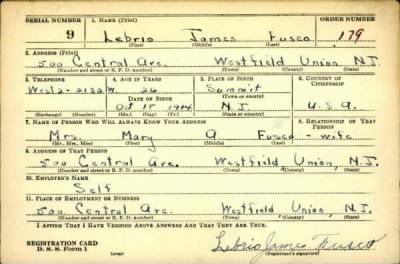 SERIAL NUMBER 1. NAME (Print) ORDER NUMBER
9 Lebrio James Fusco 179
(First) (Middle) (Last)
2. ADDRESS (Print)
500 Central Ave. Westfield Union, N.J.
(Number and street or R. F. D. number) (Town) (County) (State)
3. TELEPHONE 4. AGE IN YEARS 5. PLACE OF BIRTH 6. COUNTRY OF CITIZENSHIP
West 2-2132W. 26 Summit
DATE OF BIRTH (Town or county)
Oct 18 1914 N.J. U.S.A.
(Exchange) (Number) (Mo.) (Day) (Yr.) (State or country)
7. NAME OF PERSON WHO WILL ALWAYS KNOW YOUR ADDRESS 8. RELATIONSHIP OF THAT PERSON
Mrs. Mary A Fusco - wife
(Mr., Mrs., Miss) (First) (Middle) (Last)
9. ADDRESS OF THAT PERSON
500 Central Ave. Westfield Union, N.J.
(Number and street or R. F. D. number) (Town) (County) (State)
10. EMPLOYER'S NAME
Self
11. PLACE OF EMPLOYMENT OR BUSINESS
500 Central Ave. Westfield, Union, N.J.
(Number and street or R. F. D. number) (Town) (County) (State)
I AFFIRM THAT I HAVE VERIFIED ABOVE ANSWERS AND THAT THEY ARE TRUE.
REGISTRATION CARD
D. S. S. Form 1 (over) Lebrio James Fusco
(Registrant's signature)